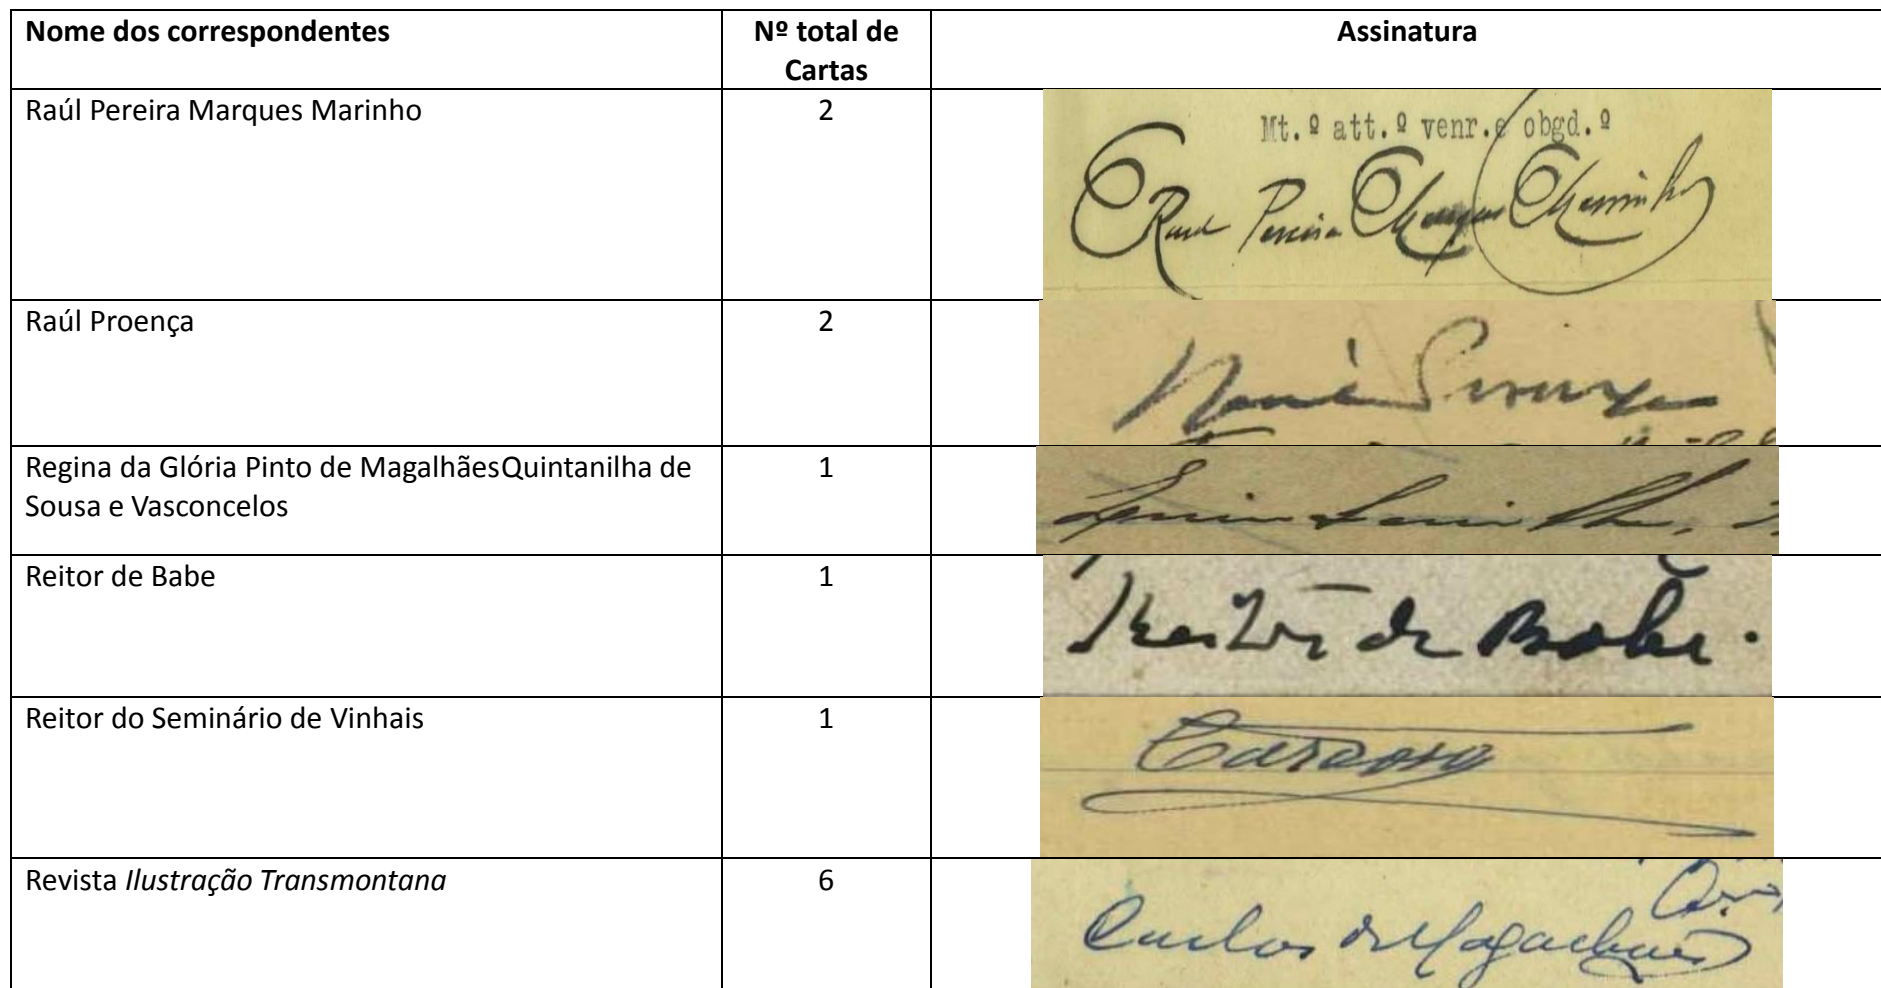 Nome dos correspondentes
Nº total de
Cartas
Assinatura
Raúl Pereira Marques Marinho
2
Mt.º att.º venr.e obgd.º
Raul Pereira Marques Marinho
Raúl Proença
2
Raúl Proença
Regina da Glória Pinto de MagalhãesQuintanilha de
Sousa e Vasconcelos
1
Reitor de Babe
1
Reitor de Babe.
Reitor do Seminário de Vinhais
1
Cardoso
Revista Ilustração Transmontana
6
Carlos de Magalhães